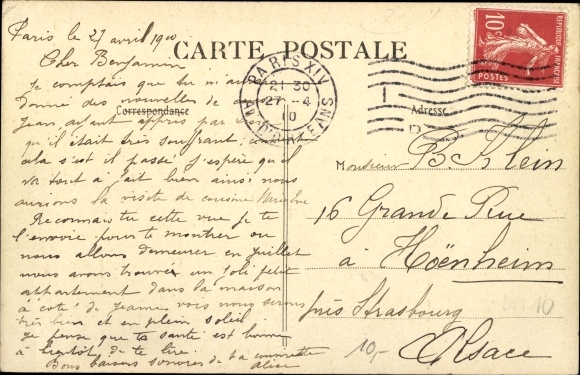 Paris le 27 avril 1910
Cher Benjamin
CARTE POSTALE
Je comptais que tu m'aurais
donné des nouvelles de
Jean ayant appris par
qu'il était très souffrant, comment
cela s'est il passé j'espère qu'il
va tout à fait bien ainsi nous
aurions la visite de cousine
Reconnais tu cette vue je te
l'envoie pour te montrer où
nous allons demeurer en juillet
nous avons trouvé un joli petit
appartement dans la maison
à coté de Jeanne, nous serons
très bien et en plein soleil
Je pense que ta santé est bonne
à bientôt de te lire.
Bons baisers sonores de ta cousinette
Alice
Correspondance
PARIS XIV
21 30
27-4
10
AV. D'ORLEANS
REPUBLIQUE FRANÇAISE
10c
POSTES
Adresse
Monsieur B. Klein
16 Grande Rue
à Hoënheim
près Strasbourg
Alsace
10,-